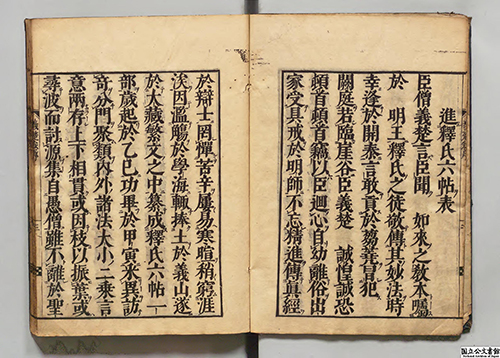 進釋氏六帖表
臣僧義楚言臣聞 如來之教本囑
於 明王釋氏之徒敬傳其妙法時
幸逢於開泰言敢貢於芻蕘冒犯
闕庭若臨崖谷臣義楚 誠惶誠恐
頓首頓首竊以臣迴心自幼離俗出
家受具戒於明師不忘精進傳真經
於辯士罔憚苦辛屢易寒暄稍窮涯
涘因濫觴於學海輙捧土於義山遂
於大藏繁文之中集成釋氏六帖一
部歲起於乙巳功畢於甲寅采異訪
奇分門聚類內外諸法大小二乗言
意兩存上下相貫或因枝以振葉或
尋波而討源集自愚僧雖不離於聖
国立公文書館